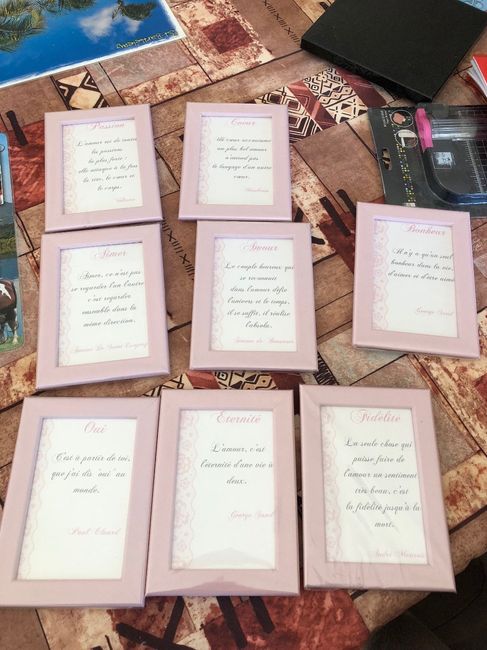 Passion
L'amour est de toutes
les passions
la plus forte :
elle attaque à la fois
la tête, le cœur et
le corps.
Voltaire
Coeur
un plus bel amour
le langage d'un autre
cœur.
Aimer
Aimer, ce n'est pas
se regarder l'un l'autre
c'est regarder
ensemble dans la
même direction.
Antoine De Saint Exupéry
Amour
Le couple heureux qui
se reconnait
dans l'amour défie
l'univers et le temps,
il se suffit, il réalise
l'absolu.
Simone de Beauvoir
Bonheur
Il n'y a qu'un seul
bonheur dans la vie,
d'aimer et d'être aimé
George Sand
Oui
C'est à partir de toi,
que j'ai dis "oui" au
monde.
Paul Eluard
Eternité
L'amour, c'est
l'éternité d'une vie à
deux.
George Sand
Fidélité
La seule chose qui
puisse faire de
l'amour un sentiment
très beau, c'est
la fidélité jusqu'à la
mort.
André Maurois